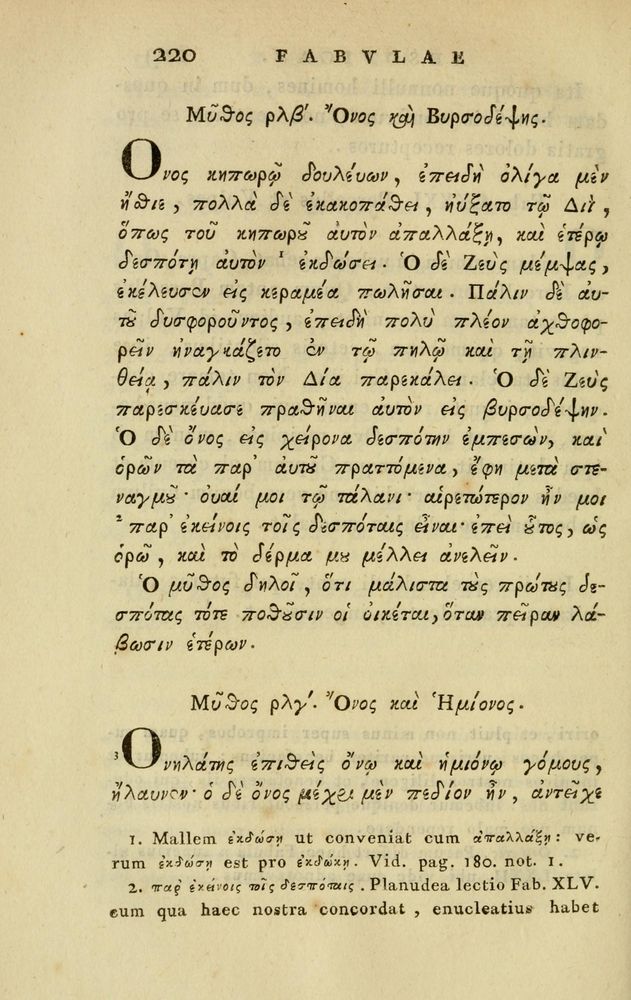 220 FABVLAE
Μῦθος ρλβʹ. Ὄνος καὶ Βυρσοδέψης.
Ὄνος κηπωρῷ δουλέυων, ἐπειδὴ ὀλίγα μὲν
ἤθιε, πολλὰ δὲ ἐκακοπάθει, ἠύξατο τῷ Διῒ,
ὅπως τοῦ κηπωροῦ αὐτὸν ἀπαλλάξῃ, καὶ ἑτέρῳ
δεσπότῃ αὐτὸν ¹ ἐκδώσει. Ὁ δὲ Ζεὺς μέμψας,
ἐκέλευσεν εἰς κεραμέα πωλῆσαι. Πάλιν δὲ ἀυ-
τοῦ δυσφοροῦντος, ἐπειδὴ πολὺ πλέον ἀχθοφο-
ρεῖν ἠναγκάζετο ἐν τῷ πηλῷ καὶ τῇ πλιν-
θείᾳ, πάλιν τὸν Δία παρεκάλει. Ὁ δὲ Ζεὺς
παρεσκέυασε πραθῆναι ἀυτὸν εἰς βυρσοδέψην.
Ὁ δὲ ὄνος εἰς χείρονα δεσπότην ἐμπεσὼν, καὶ
ὁρῶν τὰ παρ' ἀυτοῦ πραττόμενα, ἔφη μετὰ στε-
ναγμοῦ· ουαί μοι τῷ τάλανι· αἱρετώτερον ἦν μοι
² παρ' ἐκείνοις τοῖς δεσπόταις εἶναι· ἐπεὶ οὗτος, ὡς
ὁρῶ, καὶ τὸ δέρμα μου μέλλει ἀνελεῖν.
Ὁ μῦθος δηλοῖ, ὅτι μάλιστα τοὺς πρώτους δε-
σπότας τότε ποθοῦσιν οἱ οἰκέται, ὅταν πεῖραν λά-
βωσιν ἑτέρων.
Μῦθος ρλγʹ. Ὄνος καὶ Ἡμίονος.
³ Ὀνηλάτης ἐπιθεὶς ὄνῳ καὶ ἡμιόνῳ γόμους,
ἤλαυνεν· ὁ δὲ ὄνος μέχρι μὲν πεδίον ἦν, ἀντεῖχε
1. Mallem ἐκδώσῃ ut conveniat cum ἀπαλλάξῃ: ve-
rum ἐκδώσῃ est pro ἐκδώκῃ. Vid. pag. 180. not. 1.
2. παρ' ἐκείνοις τοῖς δεσπόταις. Planudea lectio Fab. XLV.
cum qua haec nostra concordat, enucleatius habet